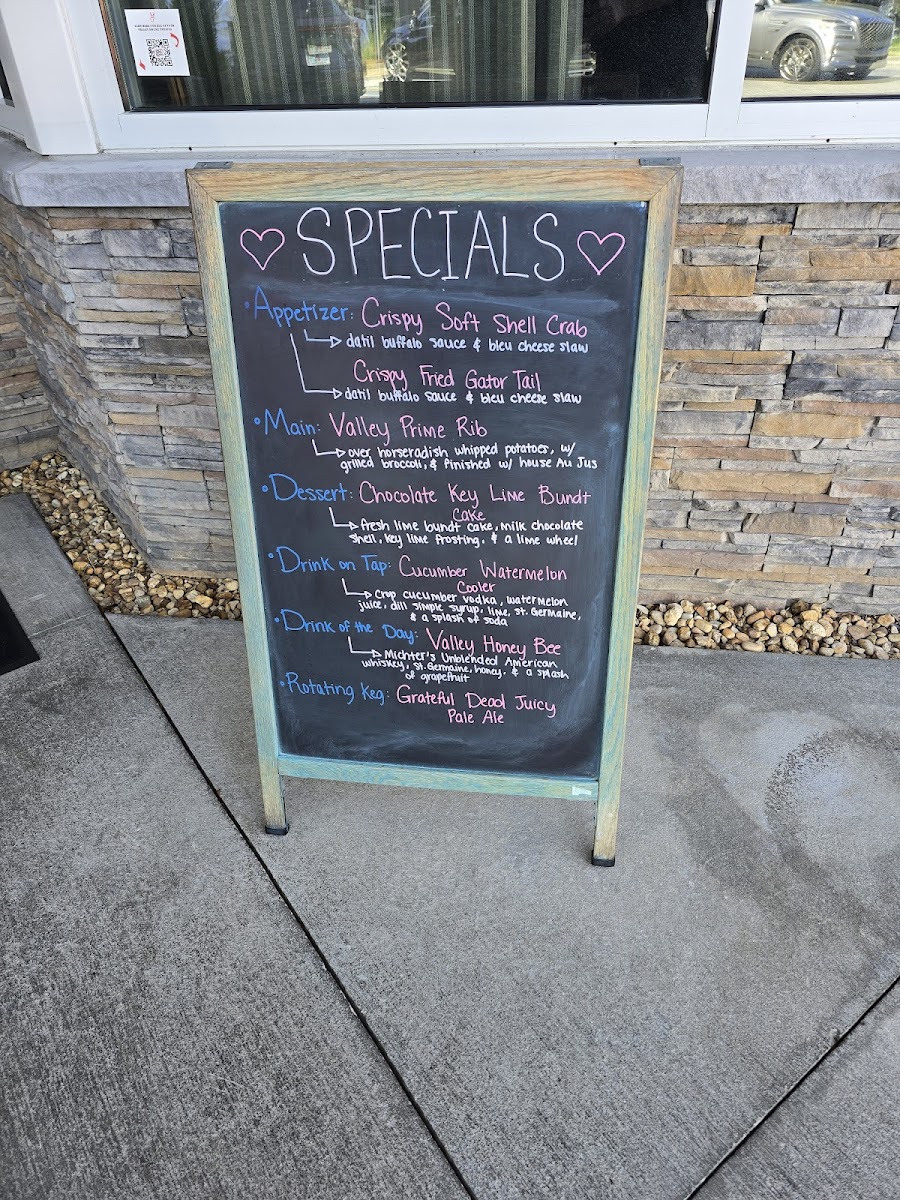 SPECIALS
Appetizer: Crispy Soft Shell Crab
datil buffalo sauce & bleu cheese slaw
Crispy Fried Gator Tail
datil buffalo sauce & bleu cheese slaw
Main: Valley Prime Rib
over horseradish whipped potatoes, w/
grilled broccoli, & finished w/ house Au Jus
Dessert: Chocolate Key Lime Bundt
Cake
fresh lime bundt cake, milk chocolate
shell, key lime frosting, & a lime wheel
Drink on Tap: Cucumber Watermelon
Cooler
Crop cucumber vodka, watermelon
juice, dill simple syrup, lime, St. Germaine,
& a splash of soda
Drink of the Day: Valley Honey Bee
Michter's Unblended American
whiskey, St. Germaine, honey, & a splash
of grapefruit
Rotating Keg: Grateful Dead Juicy
Pale Ale